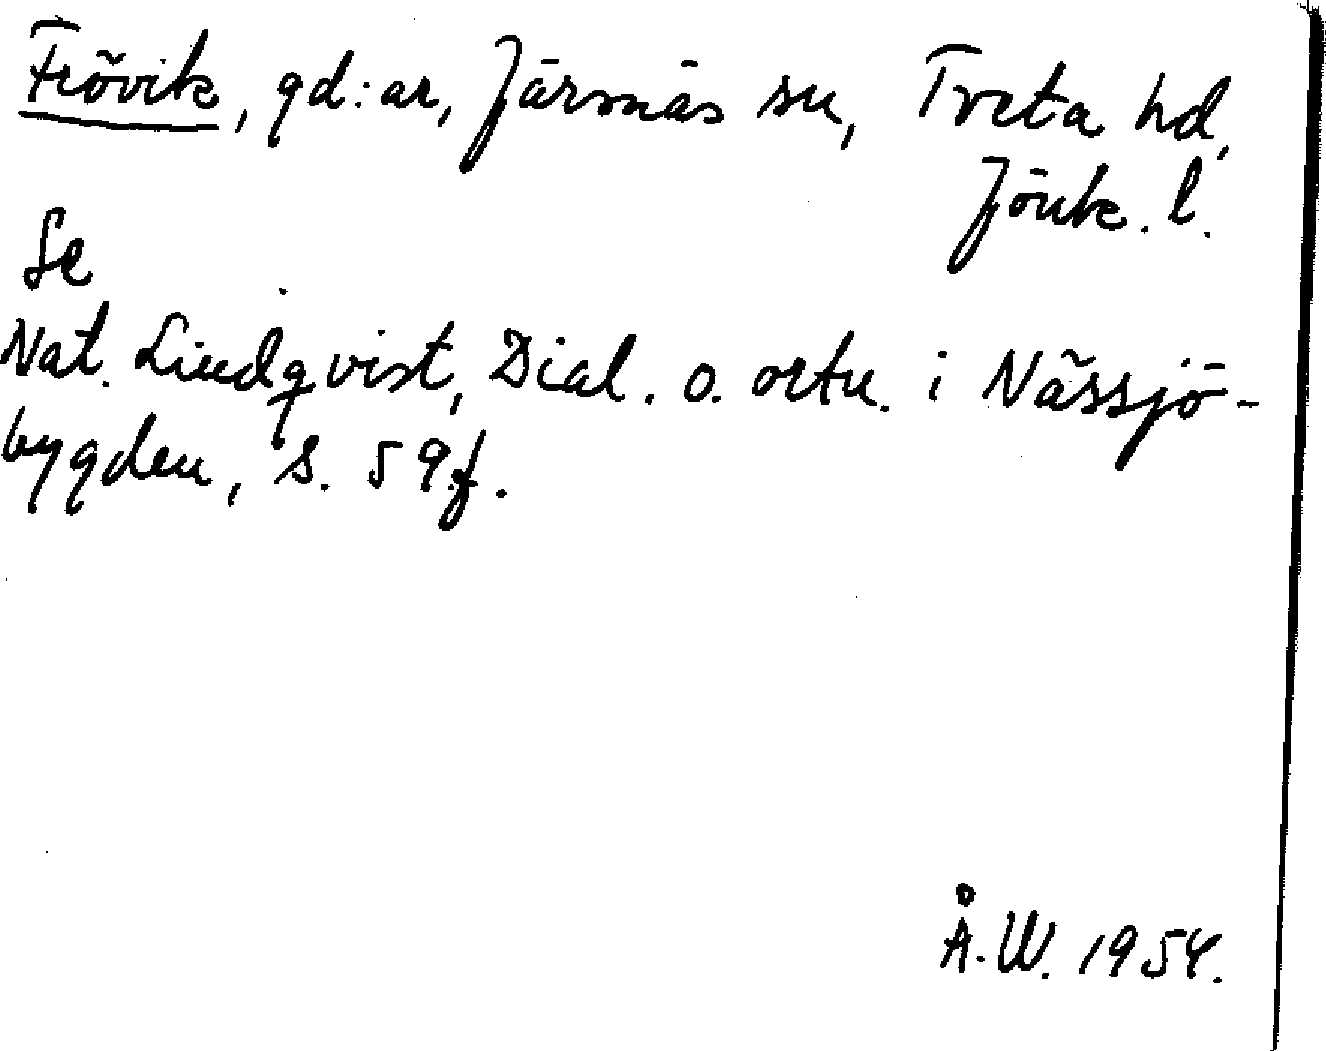 Frövik, gd:ar, Järsnäs sn, Tveta hd,
Jönk. l.
Se
Nat. Lindqvist, Dial. o. ortn. i Nässjö-
bygden, s. 59f.
Å.W. 1954.